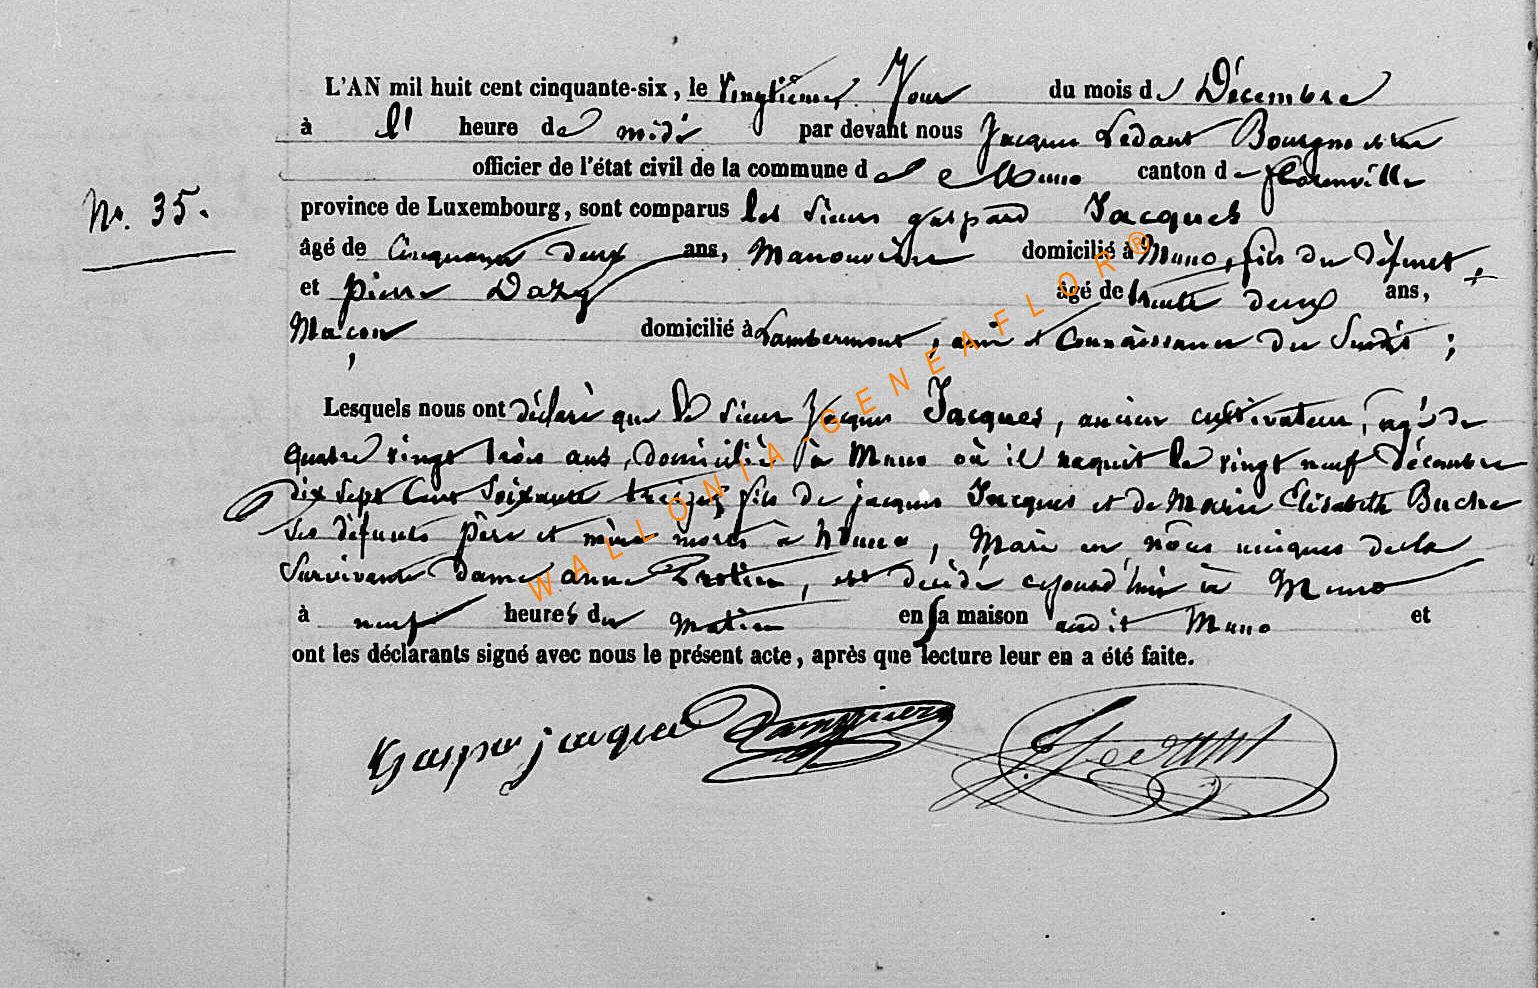 L'AN mil huit cent cinquante-six, le vingtième Jour du mois de Décembre
à l' heure de midi par devant nous Jacques Ledant Bourgmestre
officier de l'état civil de la commune de Muno canton de florenville
Nr. 35.
province de Luxembourg, sont comparus les Sieurs gaspard Jacques
âgé de Cinquante deux ans, Manouvrier domicilié à Muno, fils du défunt,
et pierre Dazy âgé de trente deux ans,
Maçon domicilié à Lambermont, ami et Connaissance du Susdit ;
Lesquels nous ont déclaré que le Sieur Jacques Jacques, ancien cultivateur, agé de
quatre vingt trois ans, domicilié à Muno où il naquit le vingt neuf décembre
dix sept Cent Soixante treize, fils de jacques Jacques et de Marie Elisabeth
Ses défunts père et mère morts à Muno, Mari en nôces uniques de la
Survivante dame anne, est décédé cejourd'hui à Muno
à neuf heures du Matin en sa maison audit Muno et
ont les déclarants signé avec nous le présent acte, après que lecture leur en a été faite.
Gaspar jacque
WALLONIA-GENEAFLOR®